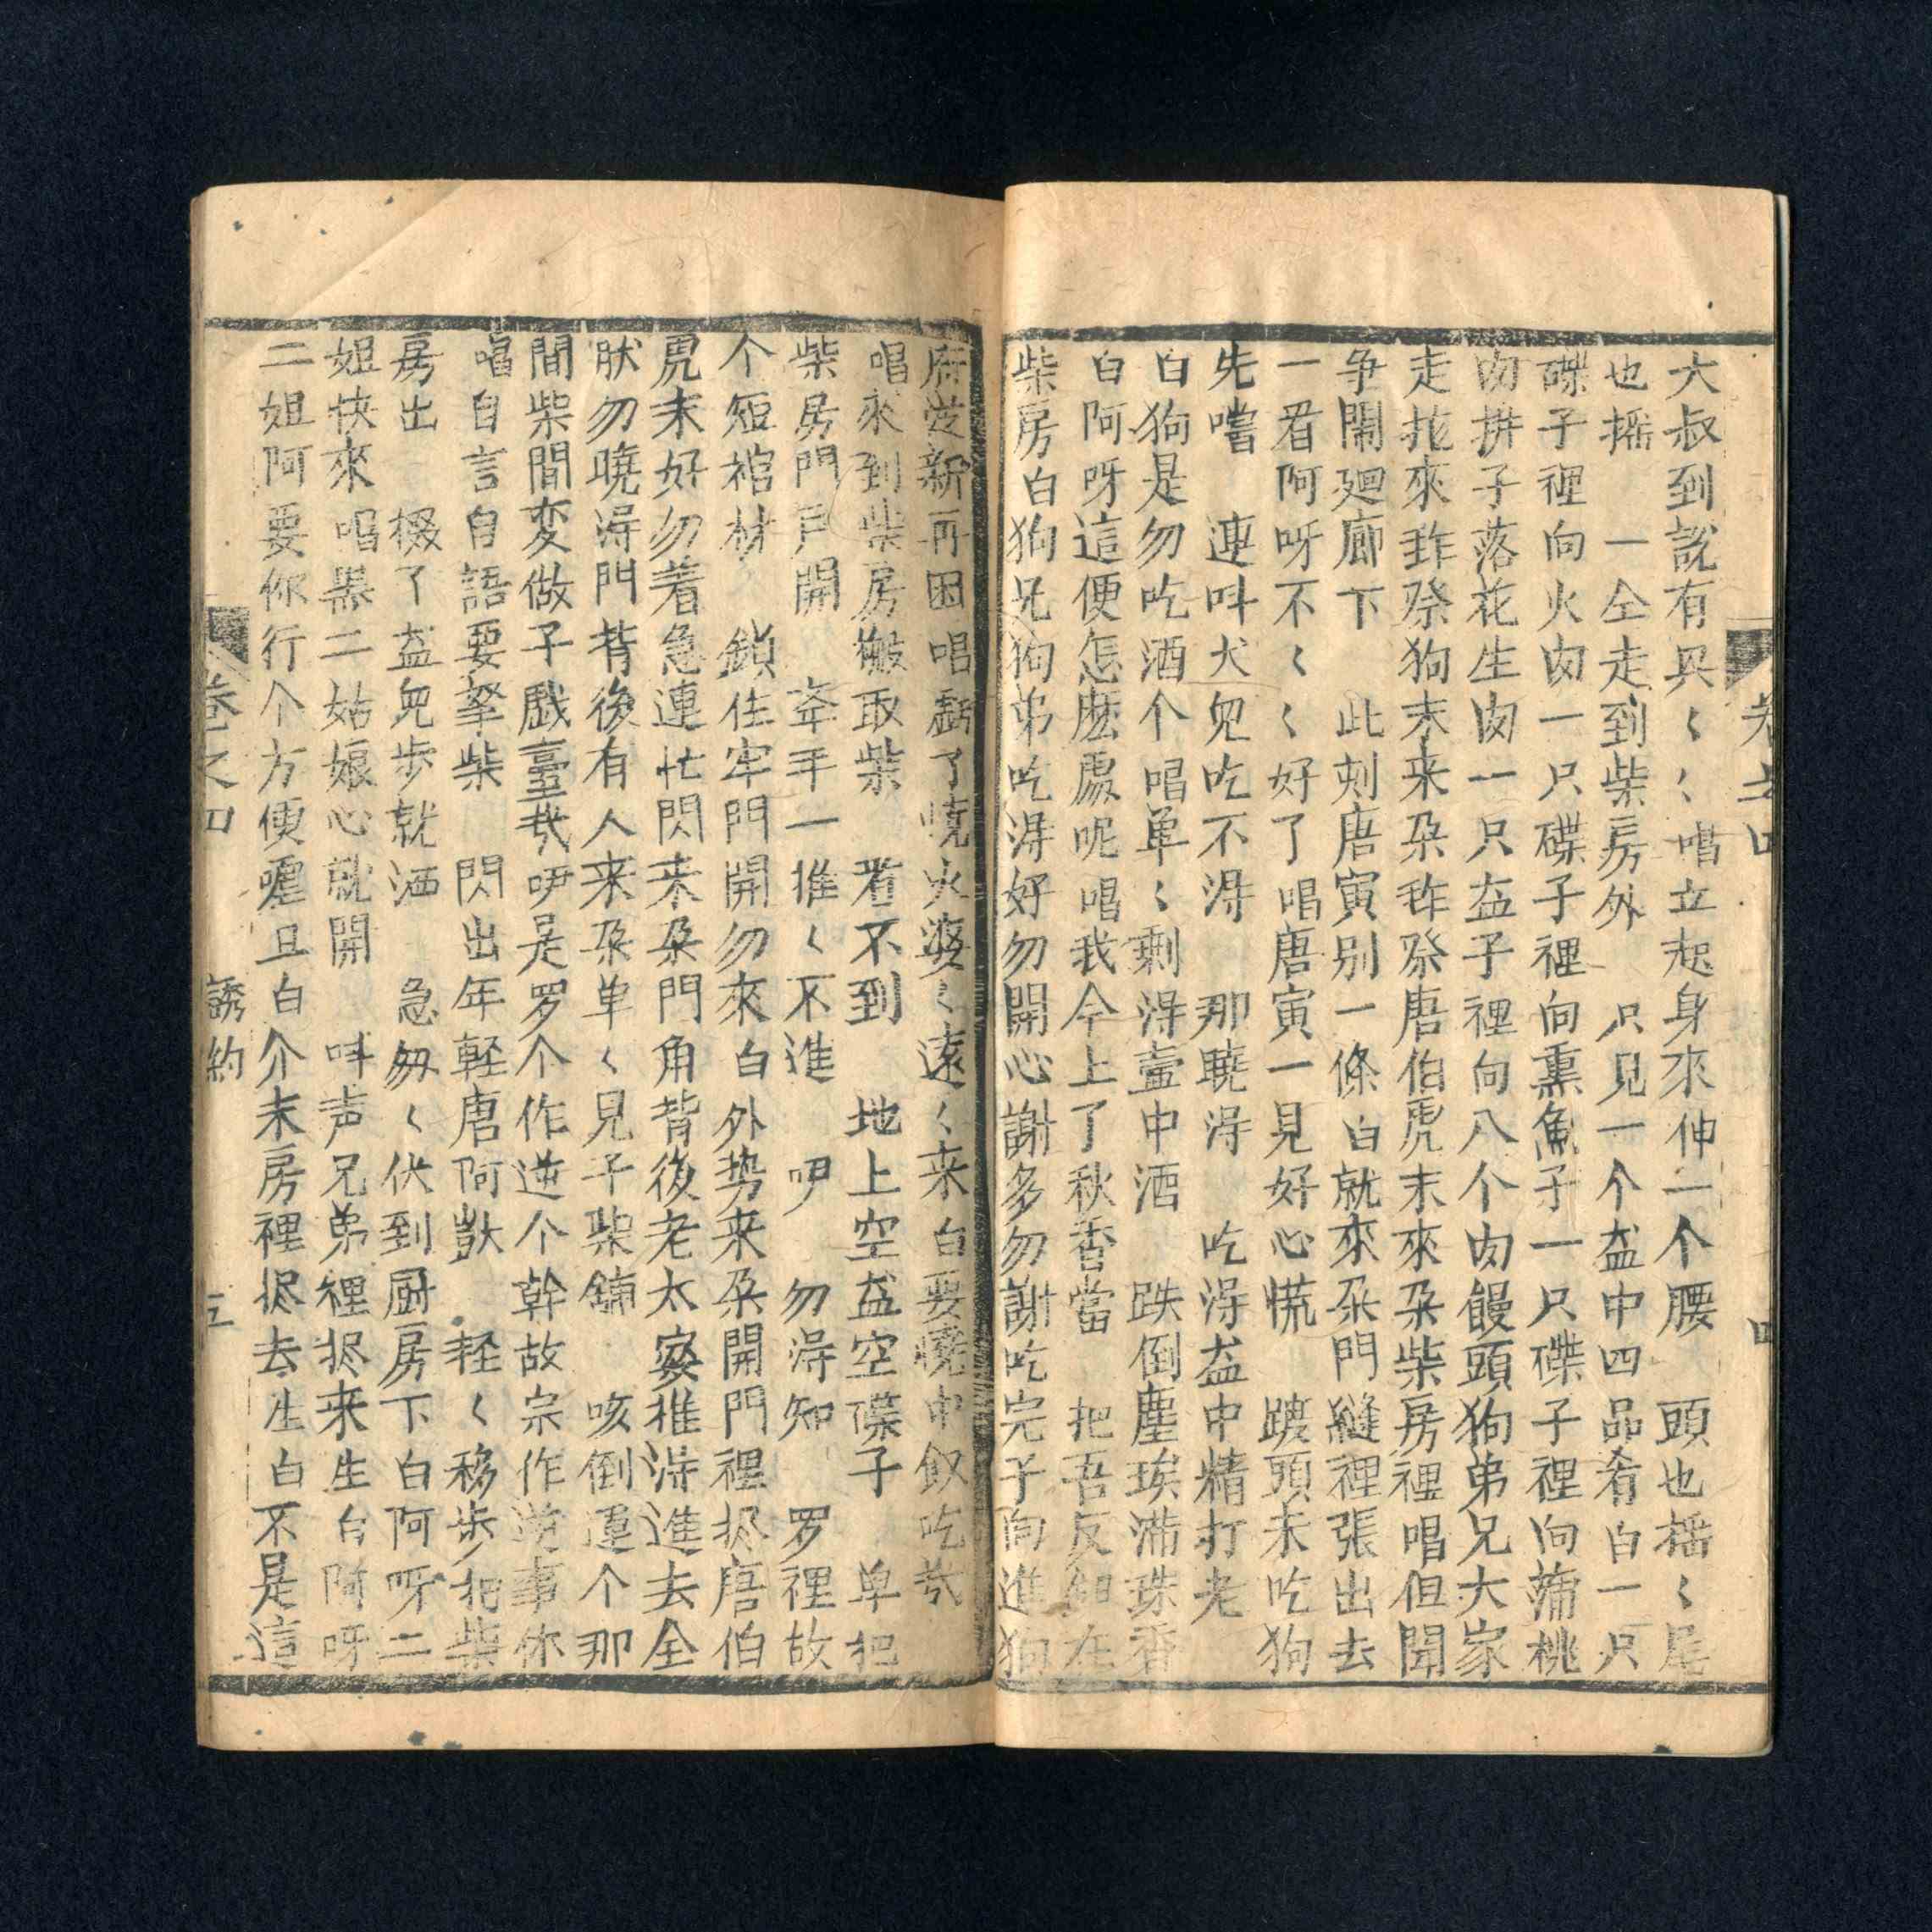 卷之四
四
大叔到說有具〱〱唱立起身來伸一个腰 頭也摇〱尾
也摇 一仝走到柴房外 只見一个盆中四品肴白一只
磼子裡向火肉一只磼子裡向熏魚子一只磼子裡向蒲桃
肉拼子落花生肉一只盆子裡向八个肉饅頭狗弟兄大家
走拢來 祭狗末来朶 祭唐伯虎末來朶柴房裡唱但聞
争鬧廻廊下 此刻唐寅别一條白就來朶門縫裡張出去
一看阿呀不〱〱好了唱唐寅一見好心慌 頭未吃狗
先嚐 連呌犬兒吃不淂 那曉淂 吃淂盆中精打老
白狗是勿吃酒个唱单〱剩淂壷中酒 跌倒塵埃滿珠香
白阿呀這便怎麽處呢唱我今上了秋香當 把吾反 在
柴房白狗兄狗弟吃淂好勿開心謝多勿謝吃完子向進狗
府 新再困唱 了燒火婆〱遠〱来白要燒中飯吃哉
唱來到柴房搬取柴 看不到 地上空盆空磼子 单把
柴房門戸開 牵手一推〱不進 咿 勿淂知 罗裡故
个短棺材 鎖住牢門開勿來白外势来朶開門裡拫唐伯
虎末好勿着急連忙閃来朶門角背後老太婆推淂進去全
肰勿曉淂門背後有人来朶单〱見子柴鋪 咳倒運个那
間柴間变做子戲臺哉咿是罗个作逆个幹故宗作逆事你
唱自言自語要拏柴 閃出年軽唐阿獃 軽〱移步把柴
房出 掇了盆兒步就洒 急匆〱伏到厨房下白阿呀二
姐快來唱 二姑娘心就開 呌声兄弟裡拫来生白阿呀
二姐阿要你行个方便 且白介末房裡拫去生白不是這
卷之四
誘約
五